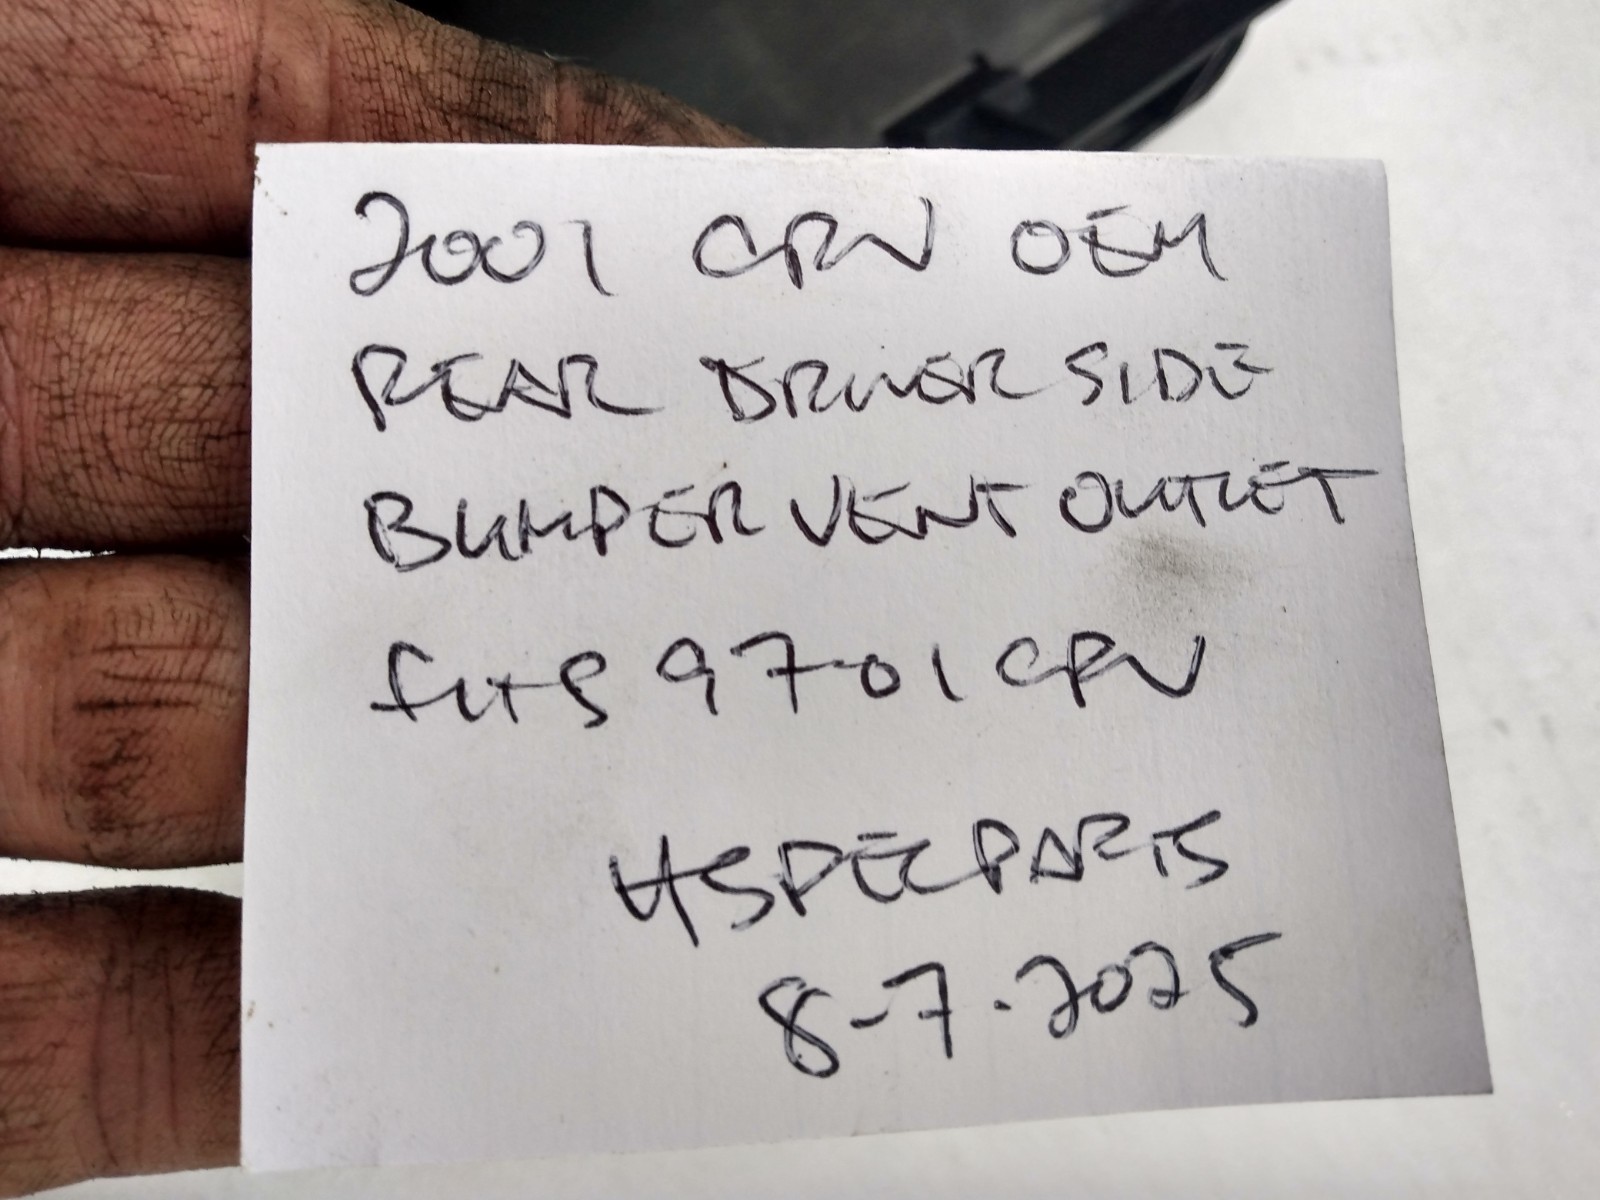 2001 CRV OEM
REAR DRIVER SIDE
BUMPER VENT OUTLET
fits 97-01 CRV
HSPECPARTS
8-7-2025